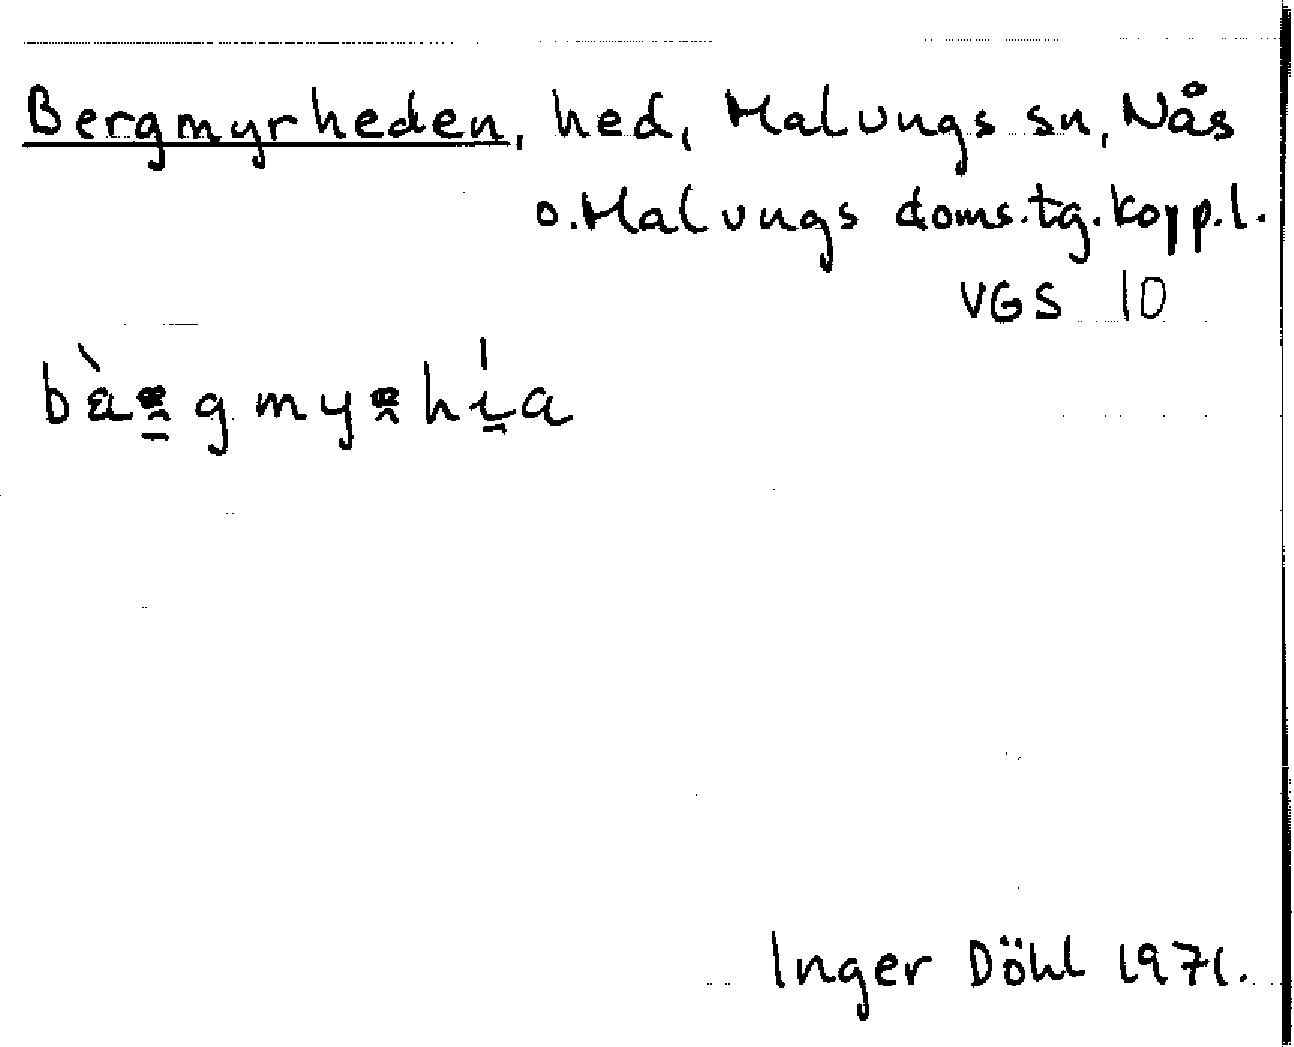 Bergmyrheden, hed, Malungs sn, Nås
o. Malungs doms.tg. Kopp.l.
VGS 10
Inger Döhl 1971.